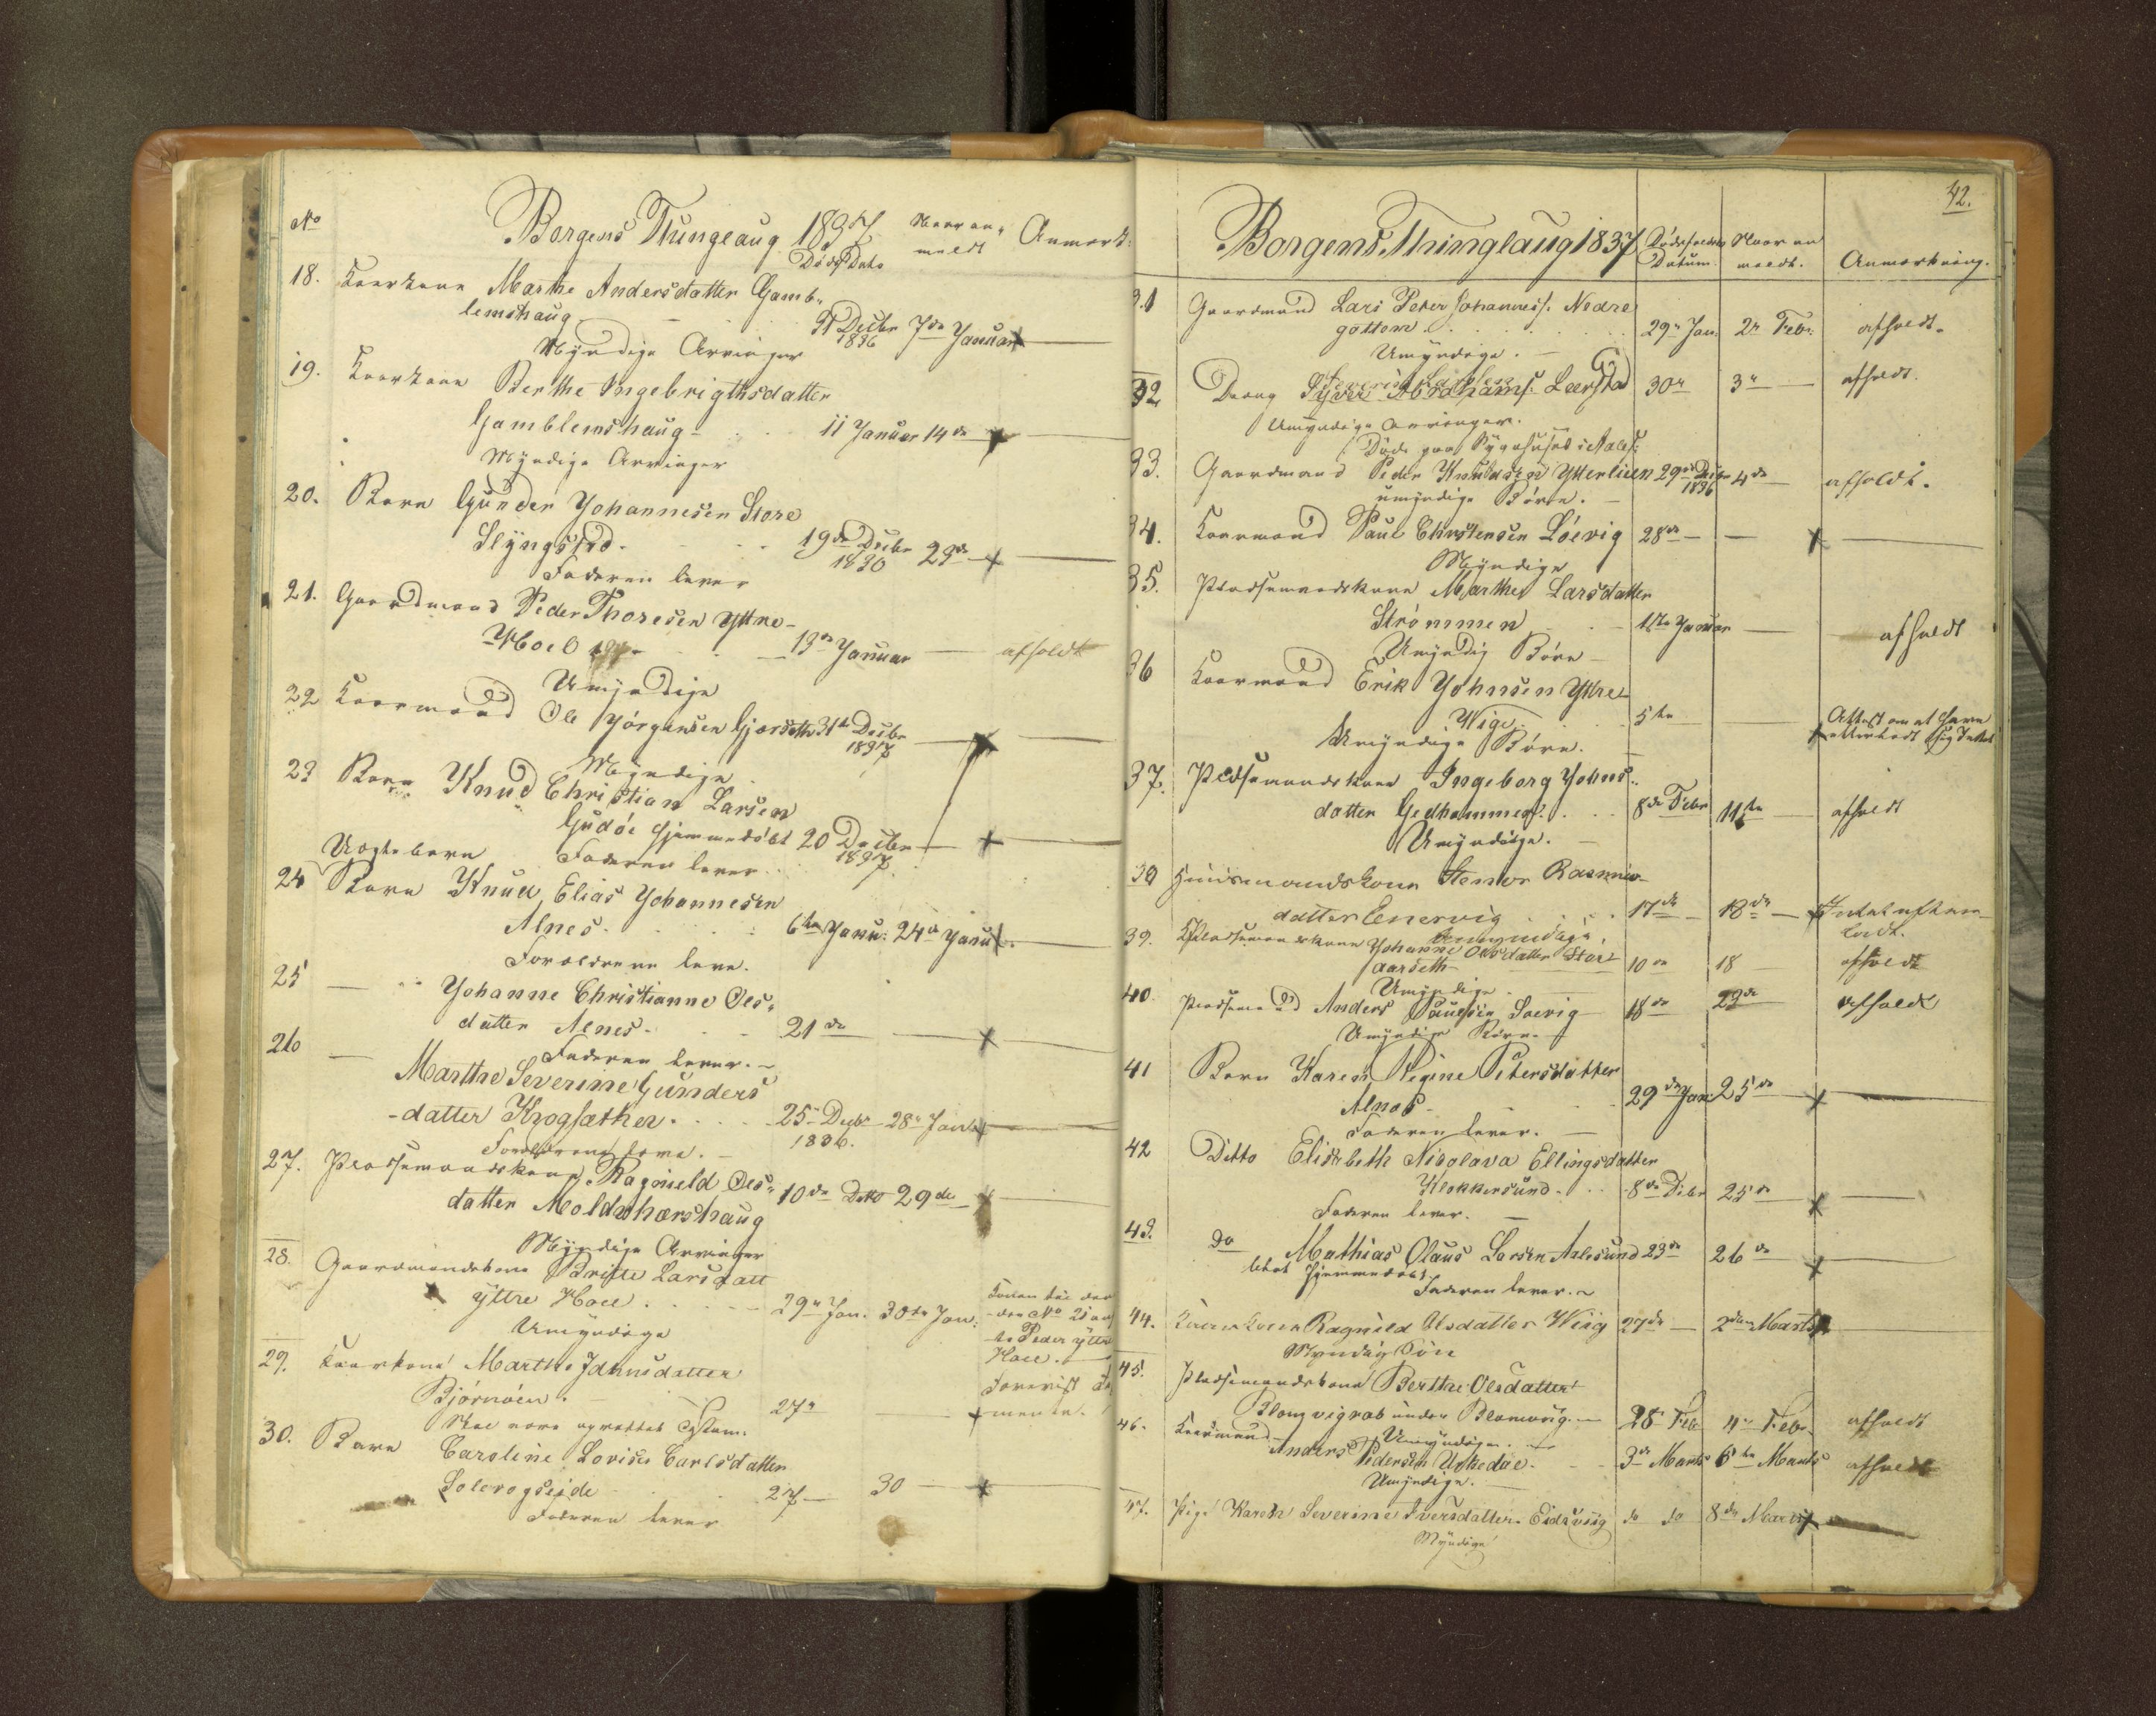 No Borgens Thinglaug 1837 Døds Dato Naar anmeldt Anmærk:
18. Kaarkone Marthe Andersdatter Gamb-
lemshaug 31 Decbr 1836 7de Januar
Myndige Arvinger
19. Kaarkone Berthe Ingebrigthsdatter
Gamblemshaug 11 Januar 14de
Myndige Arvinger
20. Barn Gunder Johannesen Store
Slyngstad 19de Decbr 1836 23de
Faderen lever
21. Gaardmand Peder Thoresen Yttre-
Hoel 13de Januar afholdt
Umyndige
22 Kaarmand Ole Jørgensen Gjerseth 31te Decbr 1837
Myndige
23 Barn Knud Christian Larsen
Gudøe Hjemmedøbt 20 Decbr 1837
Uægtebarn Faderen lever
24 Barn Knud Elias Johannesen
Alnes 6te Janu: 24de Janu
Forældrene leve.
25 — Johanne Christianne Ols-
datter Alnes 21de
Faderen lever.
26 — Marthe Severine Gunders
-datter Krogsæther 25 Decbr 1836. 28 Jan
Forældrene leve.
27. Pladsemandskone Ragnield Ols-
datter Moldskærshaug 10de Dito 29de
Myndige Arvinger
28. Gaardmandskone Britte Larsdatt
Yttre Hoel 29 Jan. 30te Jan:
Umyndige
Konen til den
under No 21 anf
te Peder Yttre
Hoel.
29. Kaarkone Marthe Johnsdatter
Bjørnøen 27
Skal være oprettet Testam.
Forevist Te
mente.
30. Barn Caroline Lovise Carlsdatter
Solevogseide 27 30
Faderen lever
42.
Borgens Thinglaug 1837 Dødsfaldets Datum. Naar an meldt. Anmærkning.
31 Gaardmand Lars Peter Johanness. Nedre
gottem 29 Jan: 2 Febr: afholdt.
Umyndige.
32 Dreng Syver Abrahams. Leerstad 30 3 afholdt.
Umyndige Arvinger.
Døde paa Sygehuset i Aales:
33. Gaardmand Peder Knudsen Ytterlien 29de Decbr 1836 4de afholdt.
umyndige Børn.
34. Kaarmand Paul Christensen Løevig 28de
Myndige
35. Pladsemandskone Marthe Larsdatter
Strømmen 1ste Januar afholdt
Umyndig Børn
36 Kaarmand Erik Johnsen Yttre
Wig 5te Attest om at have
efterladt sig Intet
Umyndige Børn.
37. Pladsemandskone Ingeborg Johns-
datter Gedhammer 8de Febr 11te afholdt
Umyndige.
38 Huusmandskone Stenvor Rasmus-
datter Emervig 17de 18de Intet efter-
ladt.
Umyndige
39. Pladsemandskone Johanne Olsdatter Stor
aarseth 10de 18 afholdt
Umyndige
40. Pladsemand Anders Paulsen Soevig 18de 23de afholdt
Umyndige Børn.
41 Barn Karen Regine Petersdatter
Alnes 29de Jan: 25de
Faderen lever.
42 Ditto Elisebeth Nicolava Ellingsdatter
Klokkersund 8de Febr 25de
Faderen lever.
43. do Mathias Olaus Larsen Aalesund 23de 26de
Hjemmedøbt Faderen lever.
44. Kaarkone Ragnild Olsdatter Wiig 27de 2den Marts
Myndig Søn
45. Pladsemandskone Berthe Olsdatter
Blomvigrab under Blomvig 28 Feb 4 Febr afholdt
Umyndige
46. Kaarmand Anders Pedersen Uskedal 3de Marts 6te Marts afholdt
Umyndige.
47. Pige Karen Severine Iversdatter Eidsviig do do 8de Marts
Myndige